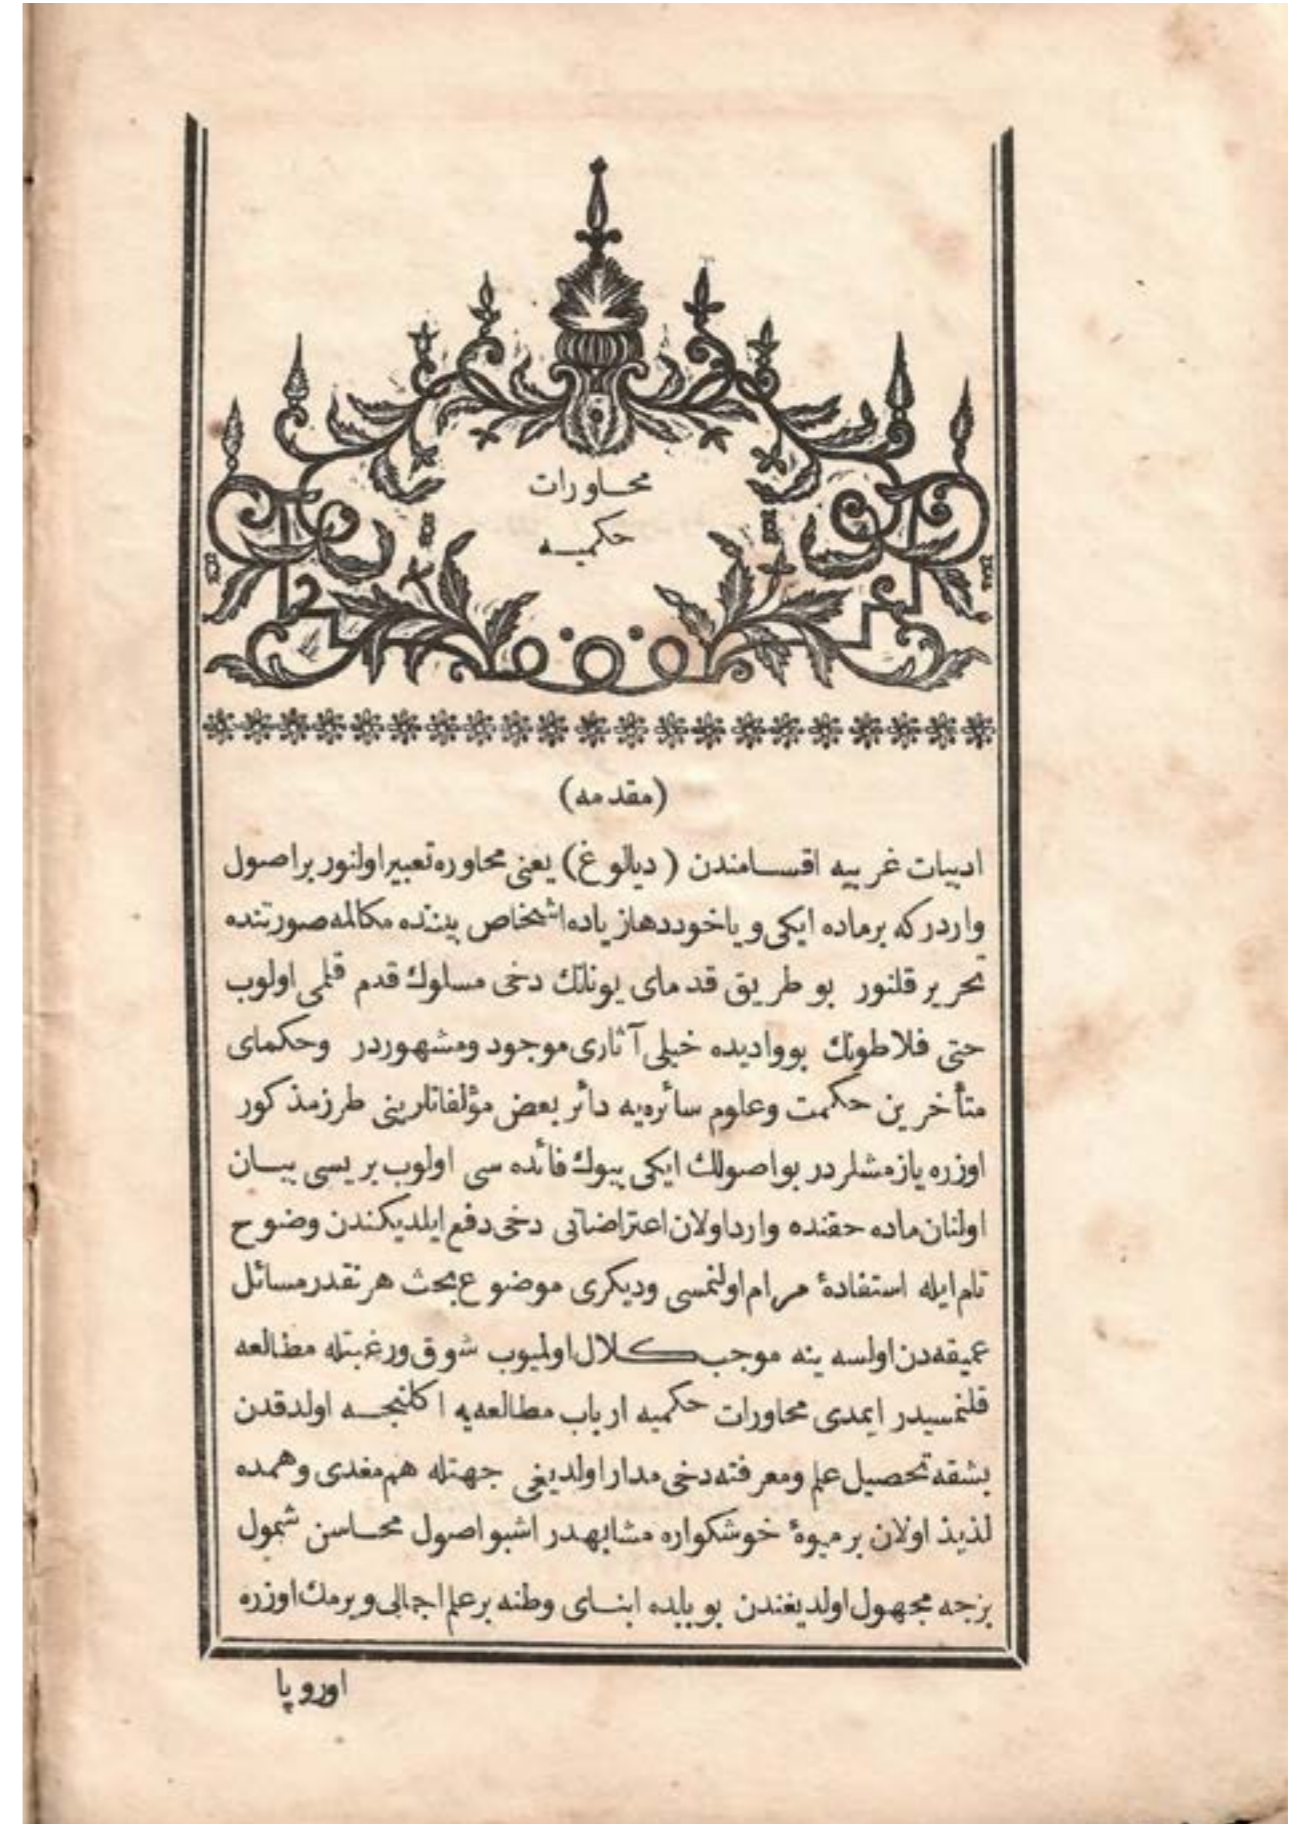 محاورات
حكميه
(مقدمه)
ادبيات غربيه اقسامندن (ديالوغ) يعنى محاوره تعبير اولنور بر اصول
واردر كه بر ماده ايكى و ياخود دها زياده اشخاص بيننده مكالمه صورتنده
تحرير قلنور بو طريق قدماى يونانك دخى مسلوك قدم قلمى اولوب
حتى فلاطونك بو واديده خيلى آثارى موجود و مشهوردر وحكماى
متأخرين حكمت وعلوم سائره‌يه دائر بعض مؤلفاتلرينى طرز مذكور
اوزره يازمشلردر بو اصولك ايكى بيوك فائده سى اولوب بريسى بيان
اولنان ماده حقنده وارد اولان اعتراضاتى دخى دفع ايلديكندن وضوح
تام ايله استفادهٔ مرام اولنمسى وديكرى موضوع بحث هر نقدر مسائل
عميقه‌دن اولسه ينه موجب كلال اولميوب شوق ورغبتله مطالعه
قلنمسيدر ايمدى محاورات حكميه ارباب مطالعه‌يه اكلنجه اولدقدن
بشقه تحصيل علم ومعرفته دخى مدار اولديغى جهتله هم مغدى وهمده
لذيذ اولان بر ميوهٔ خوشكواره مشابهدر اشبو اصول محاسن شمول
بزجه مجهول اولديغندن بو بابده ابناى وطنه بر علم اجمالى ويرمك اوزره
اوروپا